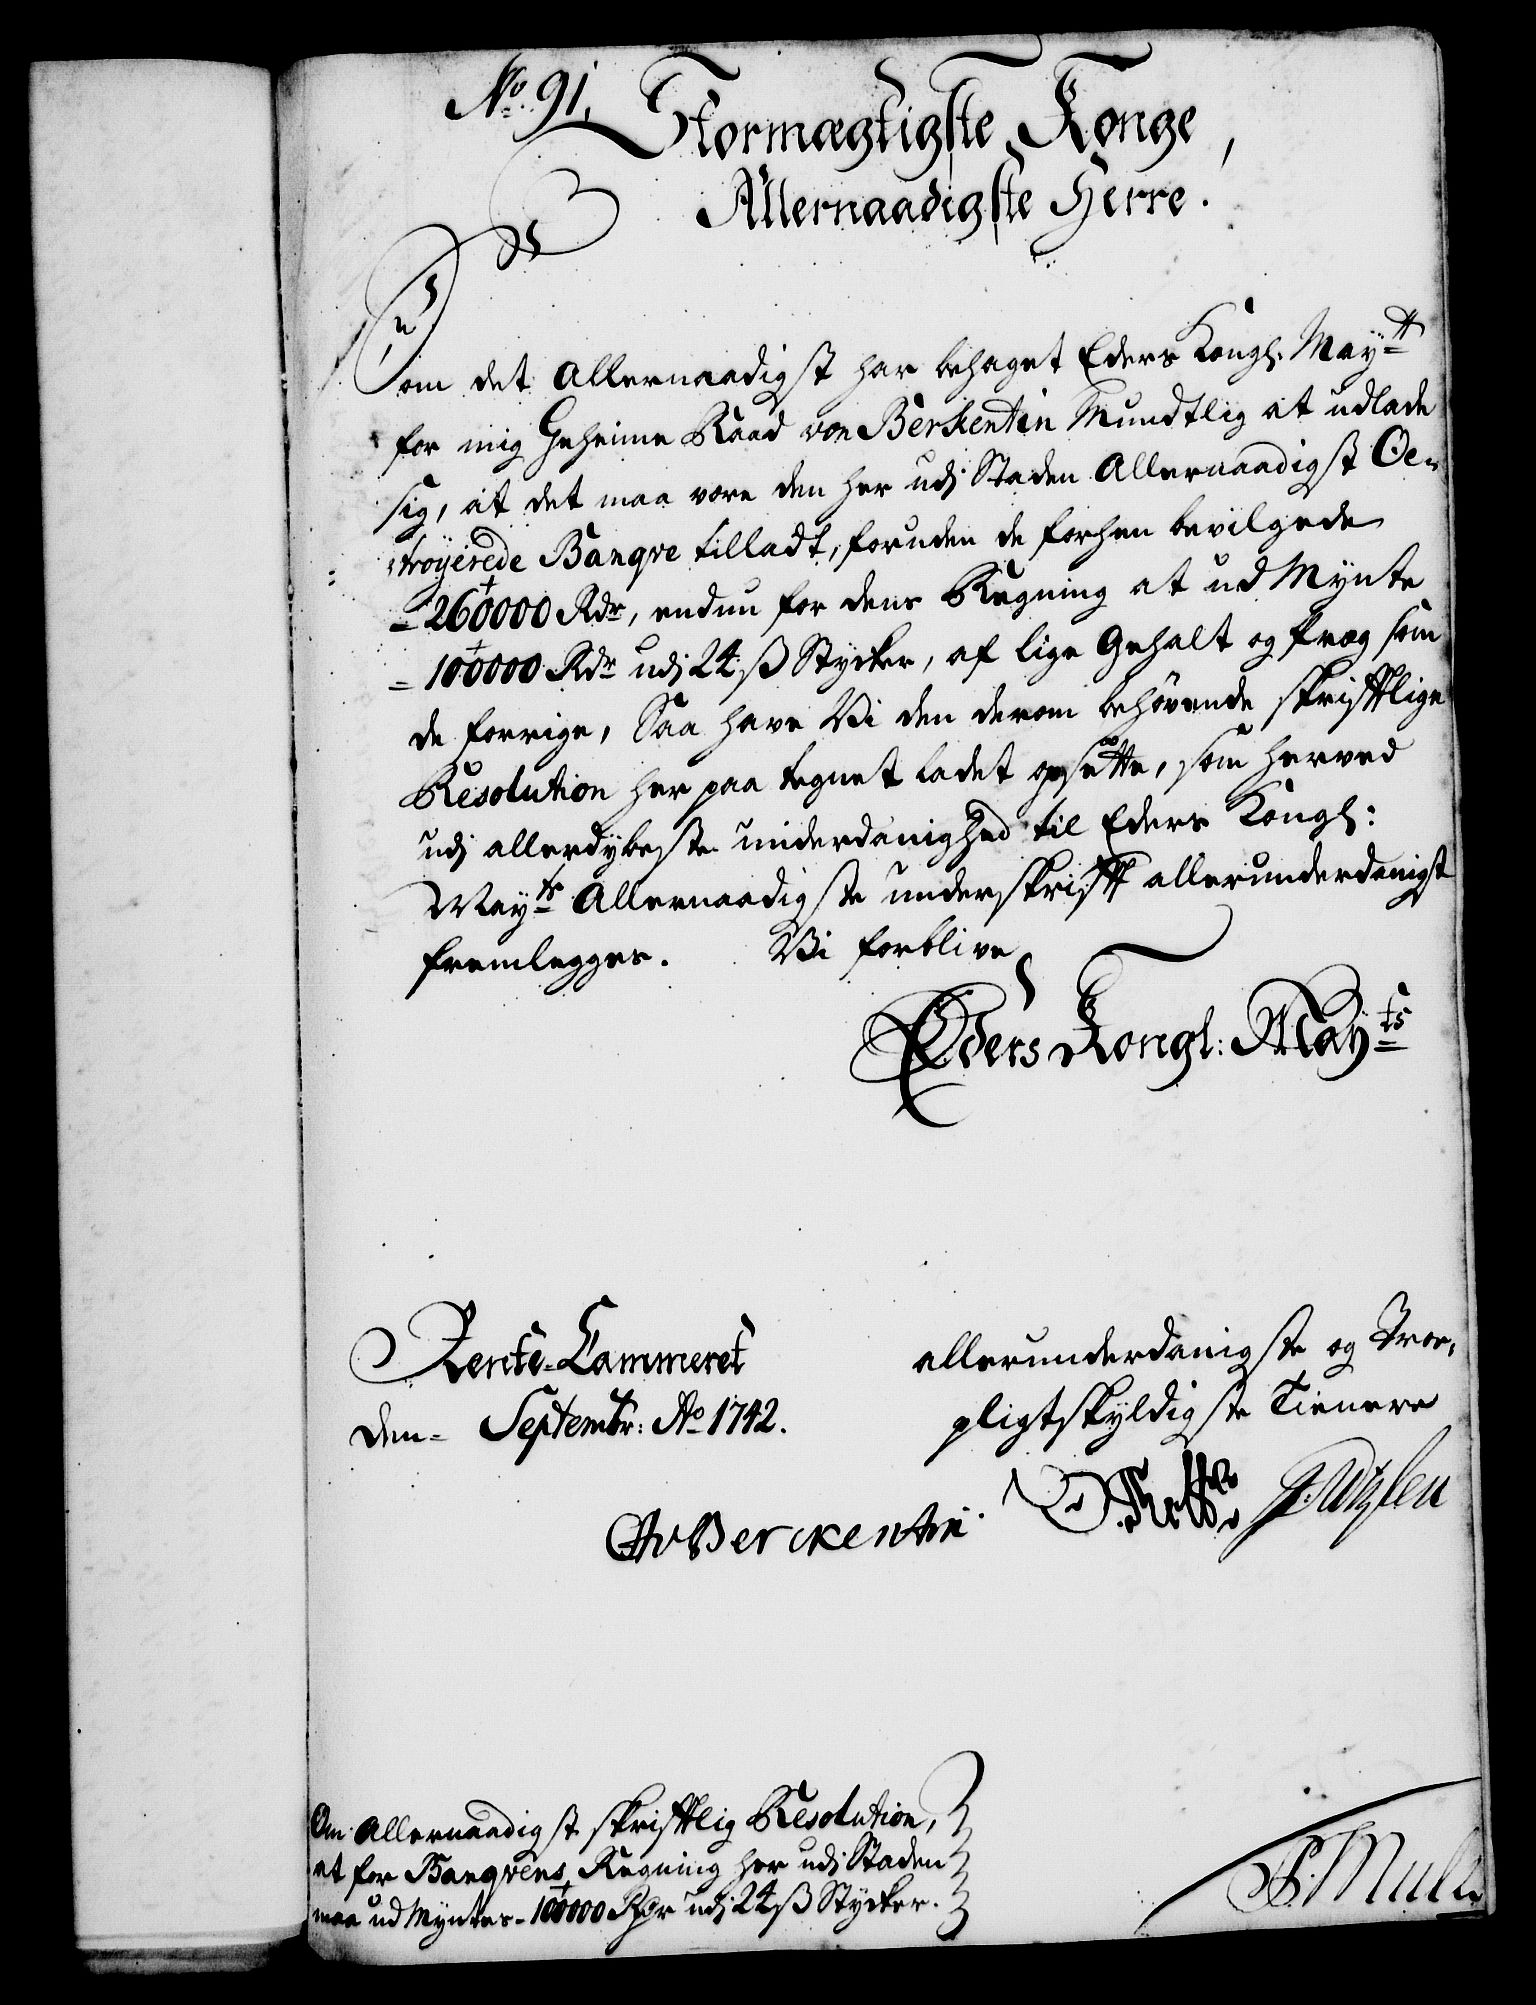 No. 91.
Stormægtigste Konge,
Allernaadigste Herre.
Som det Allernaadigst har behaget Eders Kongl: Maytt
for mig Geheime Raad von Berkentin Mundtlig at udlade
sig, at det maa være den her udj Staden Allernaadigst Oc-
troyerede Banqve tilladt, foruden de forhen bevilgede
= 260000 Rdr, endnu for dens Regning at ud Mynte
= 100000 Rdr udj 24 ß Stycker, af lige Gehalt og Præg som
de forrige, Saa have Vi den derom behövende skrifftlige
Resolution her paa tegnet ladet opsætte, som herved
udj allerdybeste underdanighed til Eders Kongl:
Mayts Allernaadigste underskrifft allerunderdanigst
fremlegges. Vi forblive
Eders Kongl: Mayts
Rente-Cammeret
den- Septembr: Ao 1742.
allerunderdanigste og Troe,
pligtskyldigste Tienere
CAvBerckentin.
Om Allernaadigst skrifftlig Resolution,
at for Banqvens Regning her udj Staden
maa ud Myntes - 100000 Rdr udj 24 ß Stycker.